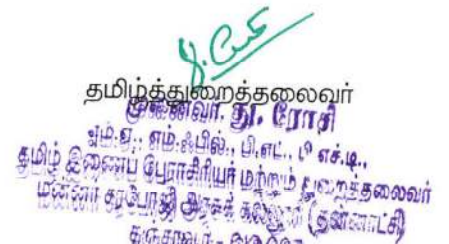 தமிழ்த்துறைத்தலைவர்
முனைவர். து. ரோதி
எம்.ஏ., எம்.ஃபில்., பி.எட்., பி எச்.டி.,
தமிழ் இணைப் பேராசிரியர் மற்றும் துறைத்தலைவர்
மன்னர் சரபோஜி அரசுக் கல்லூரி (தன்னாட்சி)